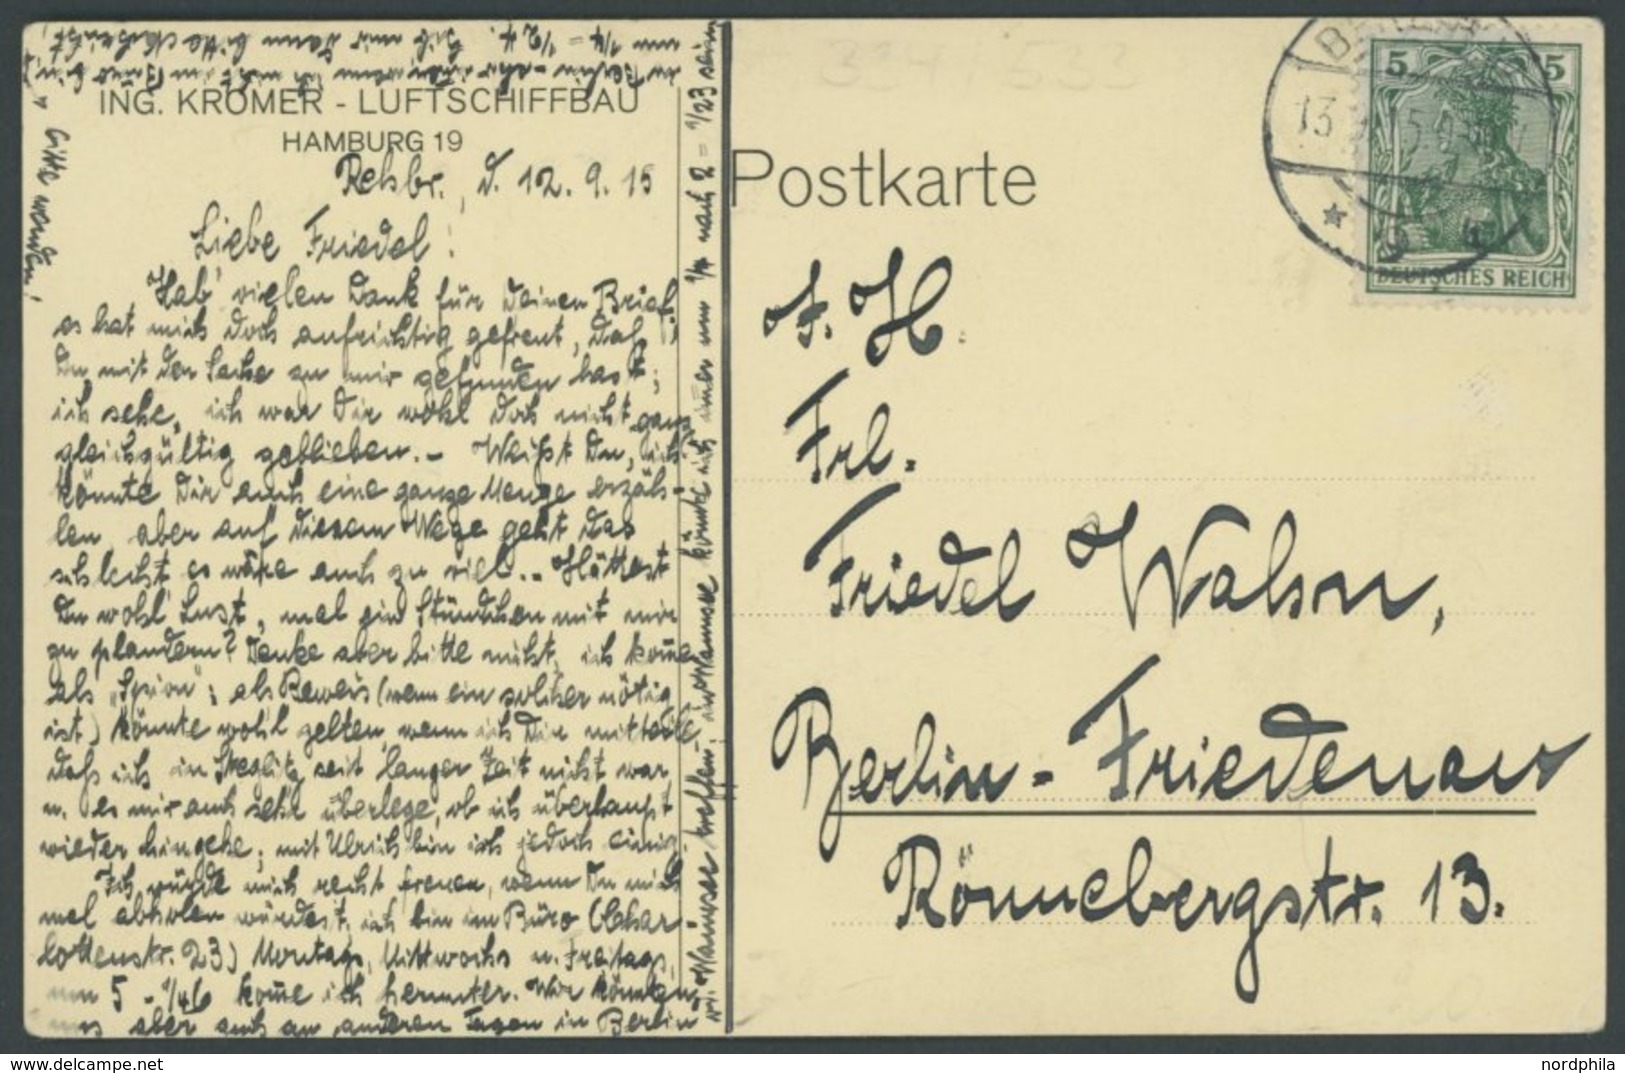 ING. KROMER - LUFTSCHIFFBAU
HAMBURG 19
Rehbr., d. 12.9.15
Liebe Friedel!
Hab' vielen Dank für Deinen Brief,
es hat mich doch aufrichtig gefreut, daß
Du mit der Sache zu mir gefunden hast;
ich sehe, ich war Dir wohl doch nicht ganz
gleichgültig geblieben. – Weißt Du, ich
könnte Dir auch eine ganze Menge erzäh-
len, aber auf diesem Wege geht das
schlecht es wäre auch zu viel. – Hättest
Du wohl Lust, mal ein Stündchen mit mir
zu plaudern? Denke aber bitte nicht, ich kom̄e
als „Spion“; als Beweis (wenn ein solcher nötig
ist) könnte wohl gelten, wenn ich Dir mitteile
daß ich in Steglitz seit langer Zeit nicht war
u. es mir auch sehr überlege, ob ich überhaupt
wieder hingehe; mit Ulrich bin ich jedoch einig.
Ich würde mich recht freuen, wenn Du mich
mal abholen würdest, ich bin im Büro (Char
lottenstr. 23) Montags, Mittwochs u. Freitags,
um 5 - 1/46 kom̄e ich herunter. Wir könnten
uns aber auch an anderen Tagen in Berlin
od. Wannsee treffen, in Wannsee könnte ich immer um 1/4 nach 2 = 1/23 sein
in Berlin - aber wenn ich nicht im Büro bin,
um 1/4 = 1/24. Gib mir dann bitte Nachricht,
bitte wenden!
Postkarte
BERLIN
13.9.15
5
5
DEUTSCHES REICH
A. H.
Frl.
Friedel Walsn,
Berlin-Friedenau
Rönnebergstr. 13.
delcampe.net
nordphila